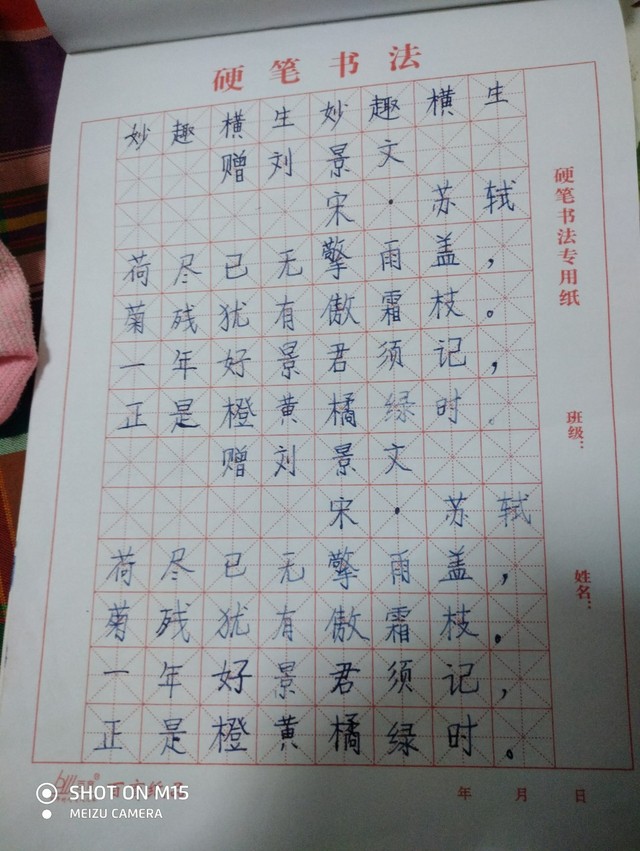 硬笔书法
妙趣横生妙趣横生
赠刘景文
宋·苏轼
荷尽已无擎雨盖，
菊残犹有傲霜枝。
一年好景君须记，
正是橙黄橘绿时。
赠刘景文
宋·苏轼
荷尽已无擎雨盖，
菊残犹有傲霜枝.
一年好景君须记，
正是橙黄橘绿时。
硬笔书法专用纸
班级：
姓名：
年 月 日
SHOT ON M15
MEIZU CAMERA